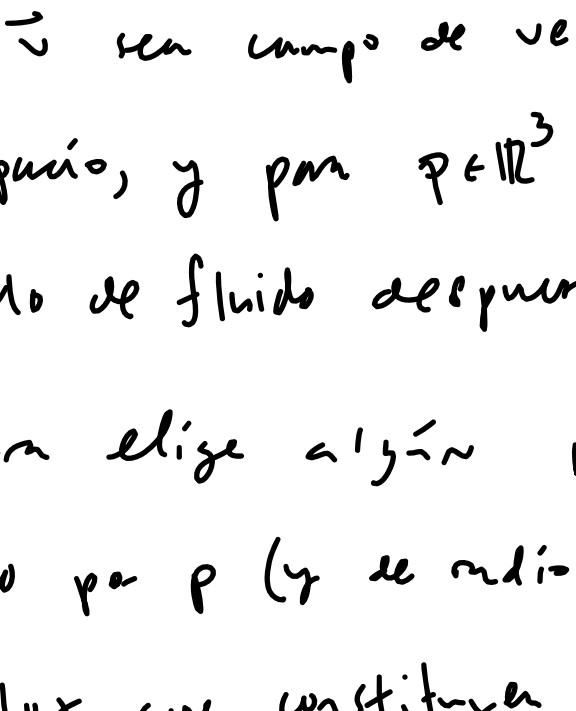 v⃗ sea campo de ve
pacio, y para p ∈ ℝ³
do de fluido despues
ra elige algún
o por p (y de radio
que constituyen